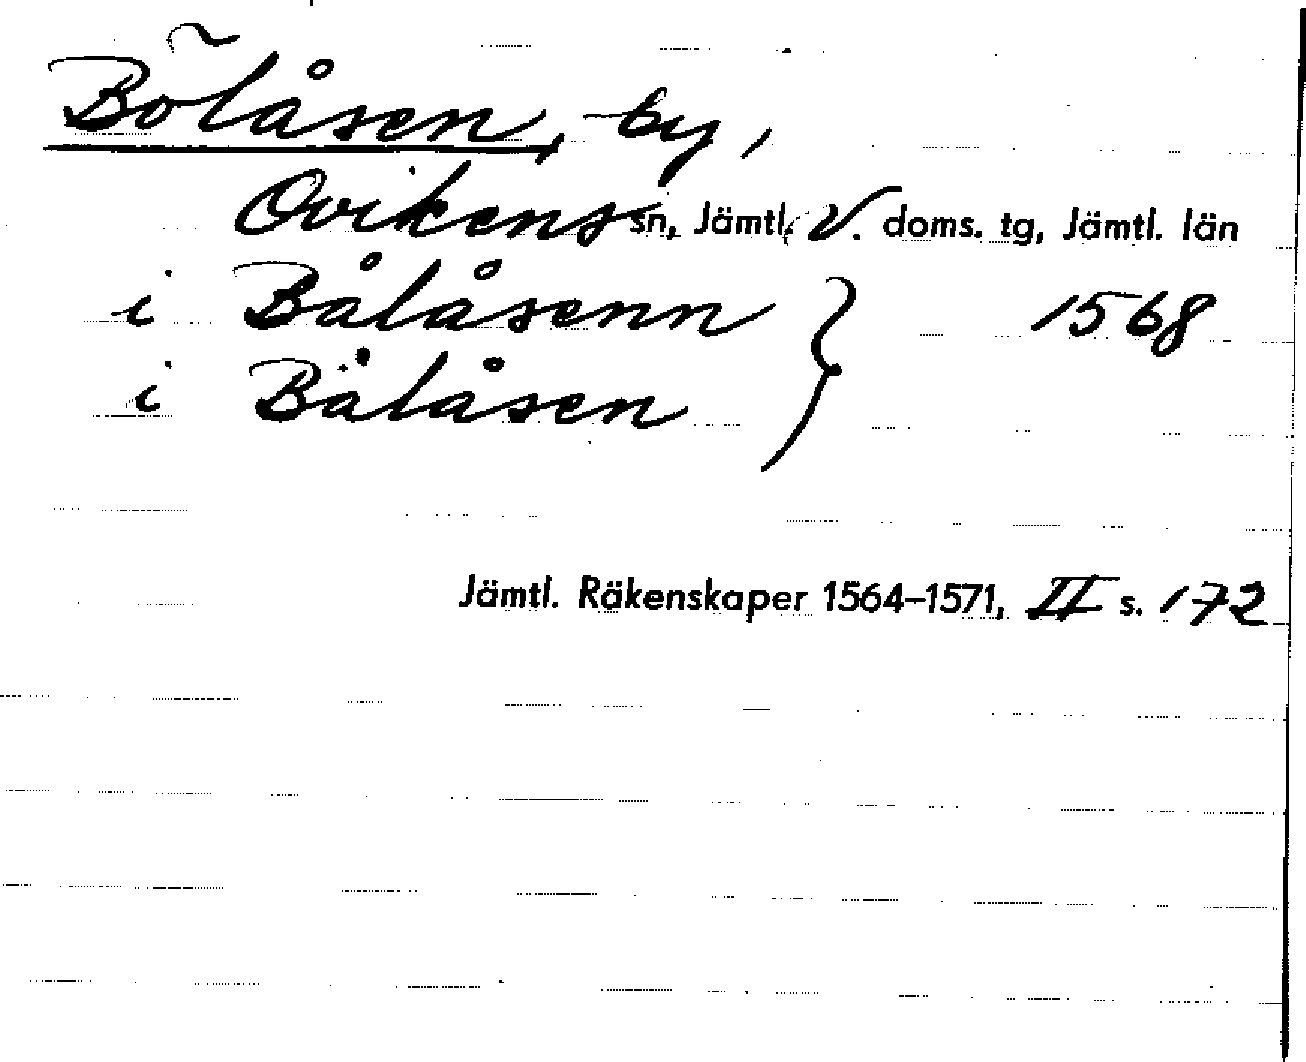 Bölåsen, by,
Ovikens sn, Jämtl. V. doms. tg, Jämtl. län
i Bålåsenn } 1568
i Bålåsen
Jämtl. Räkenskaper 1564–1571, II s. 172